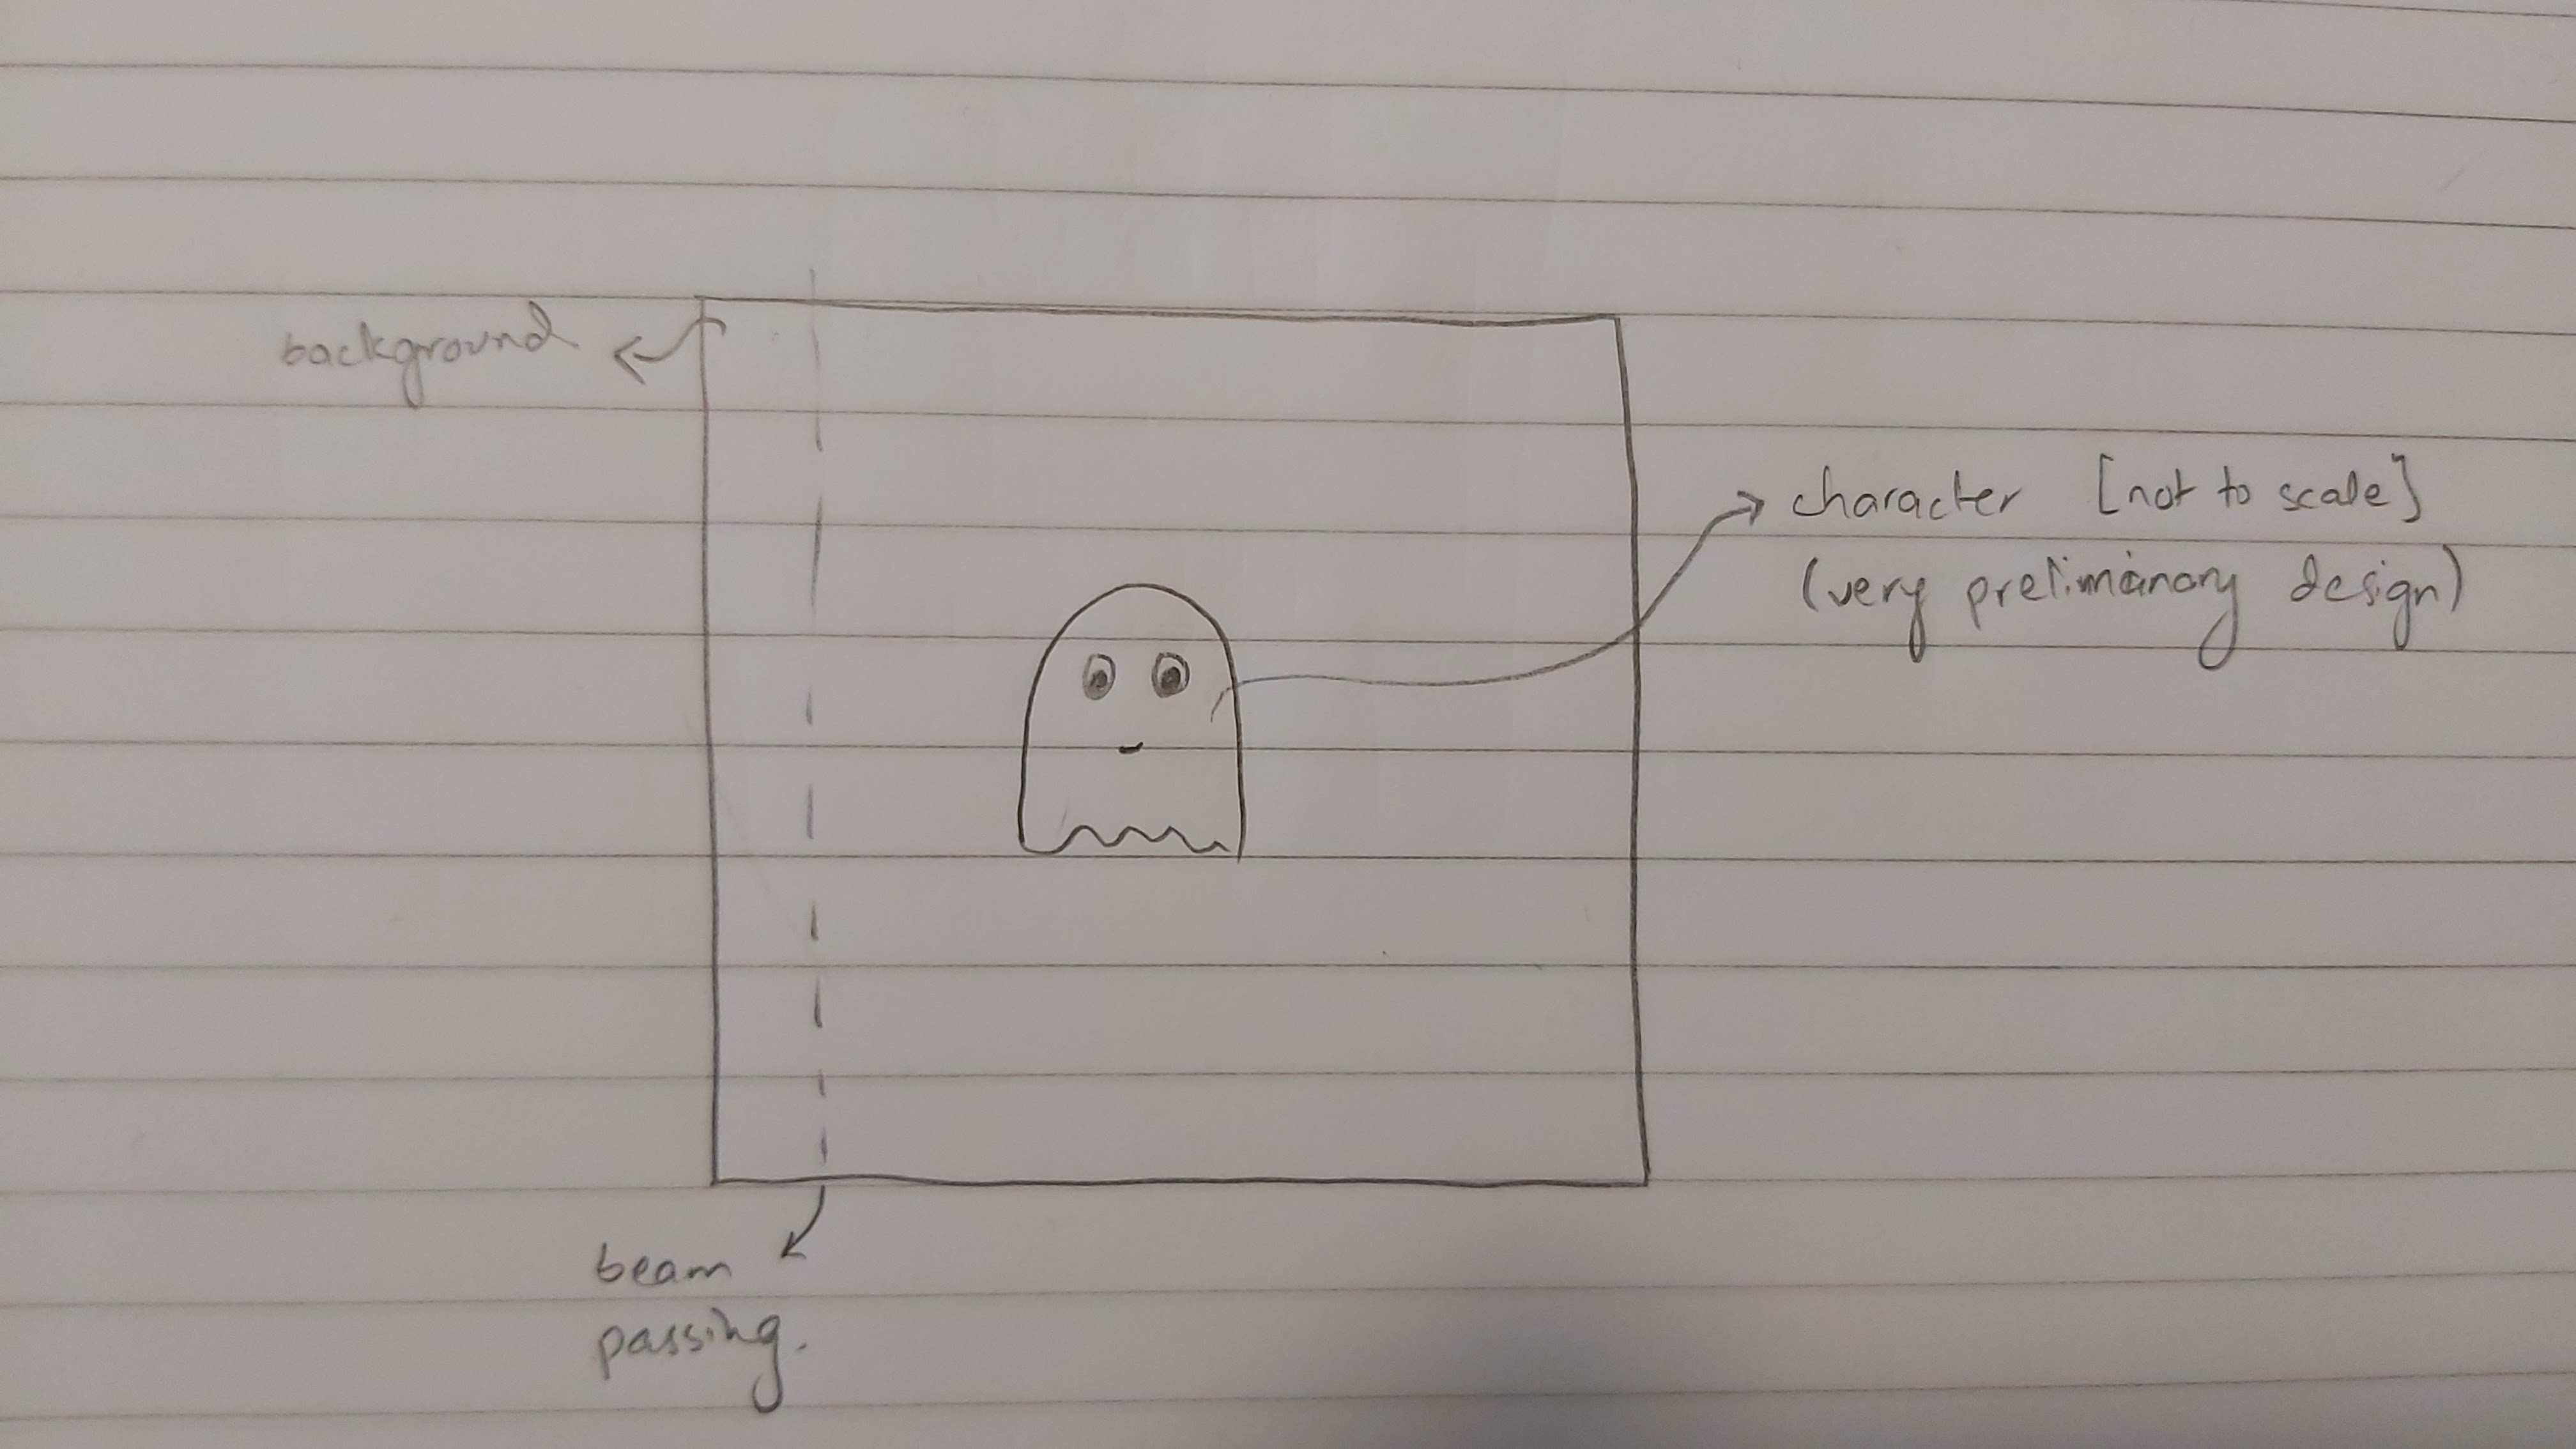 background
character [not to scale]
(very preliminary design)
beam
passing.